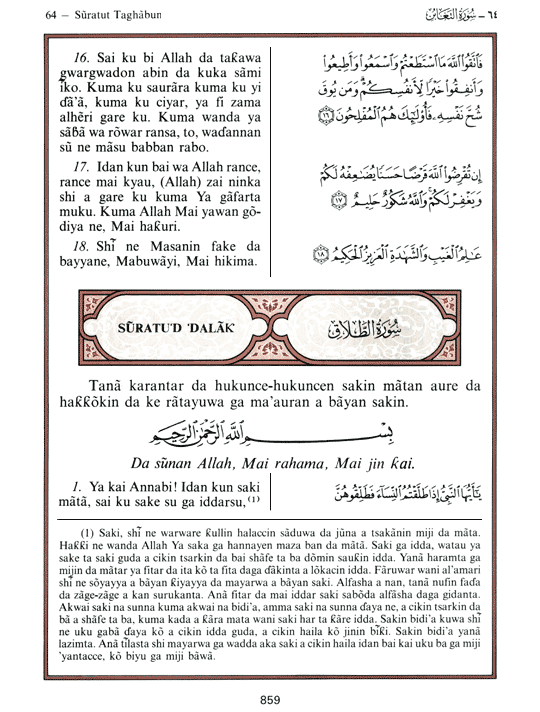 64 — Sũratut Tagãbun
٦٤ - سُورَةُ التَّغَابُن
16. Sai ku bi Allah da taƙawa
gwargwadon abin da kuka sãmi
ĩko. Kuma ku saurãra kuma ku yi
ɗã'ã, kuma ku ciyar, ya fi zama
alhẽri gare ku. Kuma wanda ya
sãɓã wa rõwar ransa, to, waɗannan
sũ ne mãsu babban rabo.
17. Idan kun bai wa Allah rance,
rance mai kyau, (Allah) zai ninka
shi a gare ku kuma Ya gãfarta
muku. Kuma Allah Mai yawan gõ-
diya ne, Mai haƙuri.
18. Shĩ ne Masanin fake da
bayyane, Mabuwãyi, Mai hikima.
فَاتَّقُوا اللَّهَ مَا اسْتَطَعْتُمْ وَاسْمَعُوا وَأَطِيعُوا
وَأَنفِقُوا خَيْرًا لِّأَنفُسِكُمْ وَمَن يُوقَ
شُحَّ نَفْسِهِ فَأُولَٰئِكَ هُمُ الْمُفْلِحُونَ ١٦
إِن تُقْرِضُوا اللَّهَ قَرْضًا حَسَنًا يُضَاعِفْهُ لَكُمْ
وَيَغْفِرْ لَكُمْ وَاللَّهُ شَكُورٌ حَلِيمٌ ١٧
عَالِمُ الْغَيْبِ وَالشَّهَادَةِ الْعَزِيزُ الْحَكِيمُ ١٨
SŨRATU'D 'DALÃK'
سُورَةُ الطَّلَاقِ
Tanã karantar da hukunce-hukuncen sakin mãtan aure da
haƙƙõkin da ke rãtayuwa ga ma'auran a bãyan sakin.
بِسْمِ اللَّهِ الرَّحْمَٰنِ الرَّحِيمِ
Da sũnan Allah, Mai rahama, Mai jin ƙai.
1. Ya kai Annabi! Idan kun saki
mãtã, sai ku sake su ga iddarsu,(1)
يَا أَيُّهَا النَّبِيُّ إِذَا طَلَّقْتُمُ النِّسَاءَ فَطَلِّقُوهُنَّ
(1) Saki, shĩ ne warware ƙullin halaccin sãduwa da jũna a tsakãnin miji da mãta.
Haƙƙi ne wanda Allah Ya saka ga hannayen maza ban da mãtã. Saki ga idda, watau ya
sake ta saki guda a cikin tsarkin da bai shãfe ta ba dõmin sauƙin idda. Yanã haramta ga
mijin da mãtar ya fitar da ita kõ ta fita daga ɗãkinta a lõkacin idda. Fãruwar wani al'amari
shĩ ne sõyayya a bãyan ƙiyayya da mayarwa a bãyan saki. Alfasha a nan, tanã nufin faɗa
da zãge-zãge a kan surukanta. Anã fitar da mai iddar saki sabõda alfãsha daga gidanta.
Akwai saki na sunna kuma akwai na bidi'a, amma saki na sunna ɗaya ne, a cikin tsarkin da
bã a shãfe ta ba, kuma kada a ƙãra mata wani saki har ta ƙãre idda. Sakin bidi'a kuwa shĩ
ne uku gabã ɗaya kõ a cikin idda guda, a cikin haila kõ jinin bĩƙi. Sakin bidi'a yanã
lazimta. Anã tĩlasta shi mayarwa ga wadda aka saki a cikin haila idan bai kai uku ba ga miji
'yantacce, kõ biyu ga miji bãwã.
859